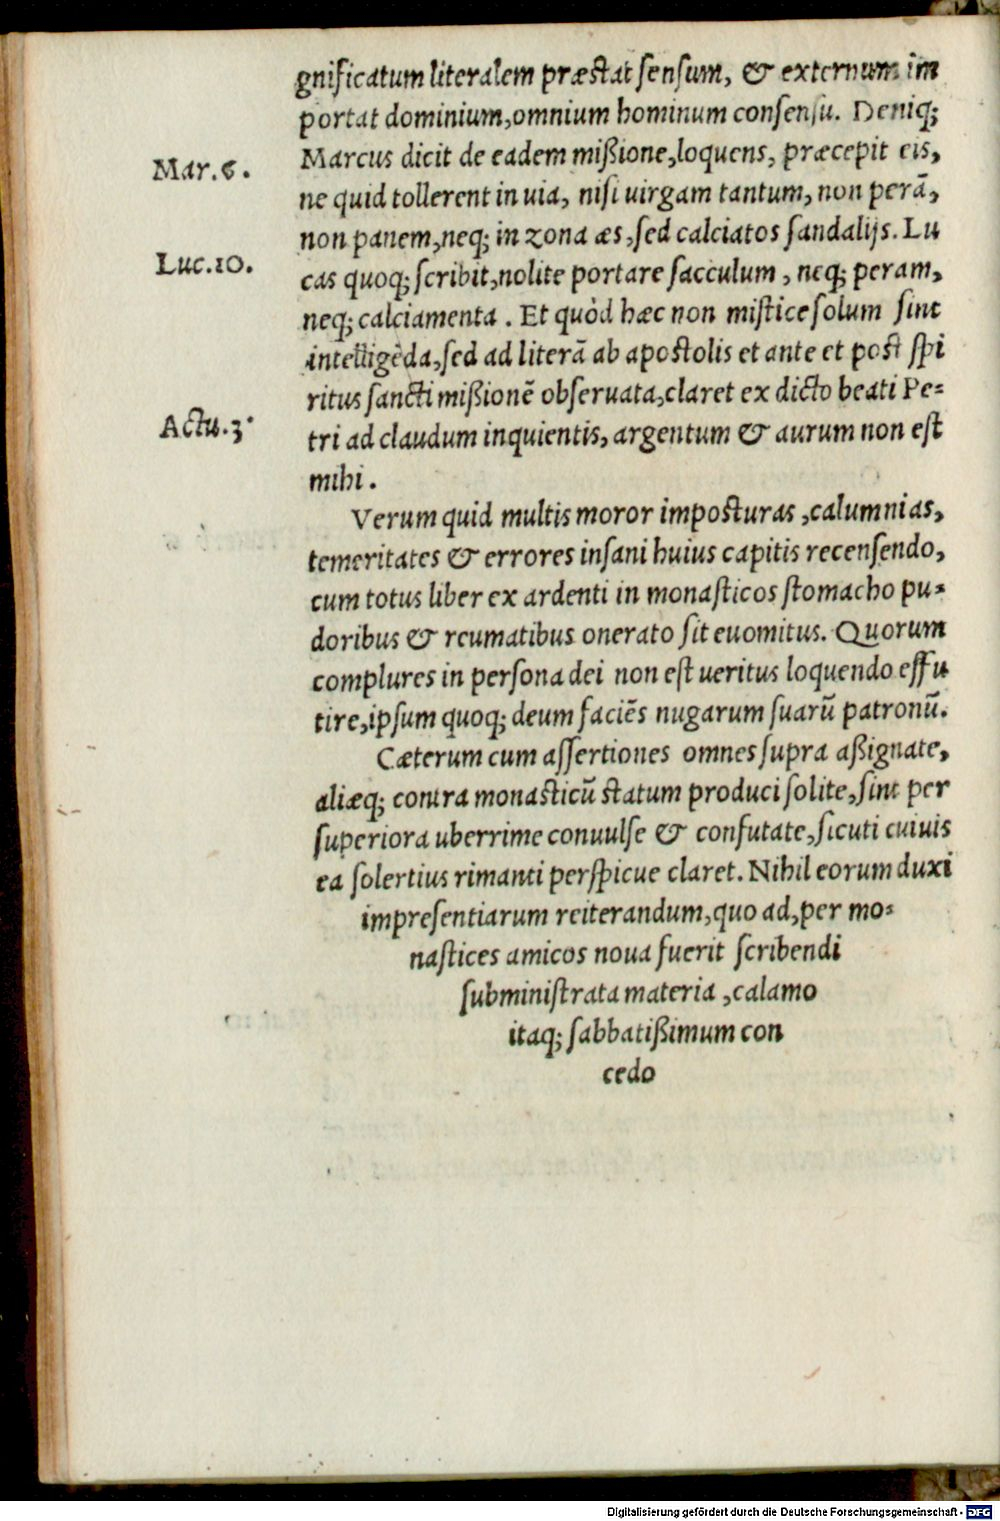 gnificatum literalem præstat sensum, & externum im
portat dominium, omnium hominum consensu. Deniq;
Mar.6.
Marcus dicit de eadem mißione, loquens, præcepit eis,
ne quid tollerent in uia, nisi uirgam tantum, non perā,
non panem, neq; in zona æs, sed calciatos sandalijs. Lu
Luc.10.
cas quoq; scribit, nolite portare sacculum, neq; peram,
neq; calciamenta. Et quòd hæc non mistice solum sint
intelligēda, sed ad literā ab apostolis et ante et post spi
ritus sancti mißionē obseruata, claret ex dicto beati Pe-
Actu.3.
tri ad claudum inquientis, argentum & aurum non est
mihi.
Verum quid multis moror imposturas, calumnias,
temeritates & errores insani huius capitis recensendo,
cum totus liber ex ardenti in monasticos stomacho pu-
doribus & reumatibus onerato sit euomitus. Quorum
complures in persona dei non est ueritus loquendo effu
tire, ipsum quoq; deum faciēs nugarum suarū patronū.
Cæterum cum assertiones omnes supra aßignate,
aliæq; contra monasticū statum produci solite, sint per
superiora uberrime conuulse & confutate, sicuti cuiuis
ea solertius rimanti perspicue claret. Nihil eorum duxi
impresentiarum reiterandum, quo ad, per mo-
nastices amicos noua fuerit scribendi
subministrata materia, calamo
itaq; sabbatißimum con
cedo
Digitalisierung gefördert durch die Deutsche Forschungsgemeinschaft - DFG